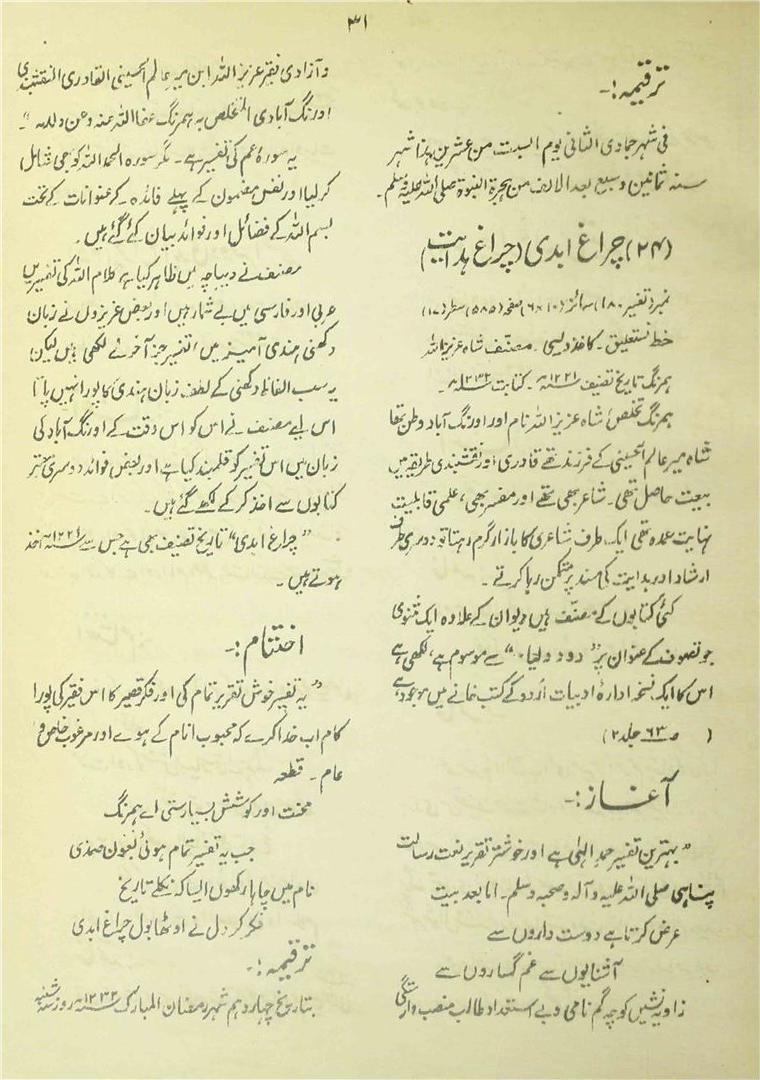 ۳۱
ترقیمہ :۔
فی شہر جمادی الثانی یوم السبت من عشرین ہذا شہر
سنہ ثمانین و سبع بعد الالف من ہجرة النبوة صلی اللہ علیہ وسلم۔
(۲۴) چراغ ابدی (چراغ ہدایت)
نمبر (تفسیر ۱۸۰) سائز (۱۰×۶) صفحہ (۵۸۵) سطر (۱۷)
خط نستعلیق۔ کاغذ دیسی۔ مصنف شاہ عزیز اللہ
ہمرنگ تاریخ تصنیف ۱۲۲۱ھ۔ کتابت ۱۲۳۲ھ۔
ہمرنگ تخلص، شاہ عزیز اللہ نام اور اورنگ آباد وطن تھا
شاہ میر عالم الحسینی کے فرزند تھے قادری اور نقشبندی طریقہ میں
بیعت حاصل تھی۔ شاعر بھی تھے اور مفسر بھی، علمی قابلیت
نہایت عمدہ تھی ایک طرف شاعری کا بازار گرم رہتا تو دوسری طرف
ارشاد اور ہدایت کی مسند پر متمکن رہا کرتے۔
کئی کتابوں کے مصنف ہیں دیوان کے علاوہ ایک مثنوی
جو تصوف کے عنوان پر " سے موسوم ہے، لکھی ہے
اس کا ایک نسخہ ادارۂ ادبیات اُردو کے کتب خانے میں موجود ہے
( صـ ۶۳ جلد ۲)
آغاز :۔
"بہترین تفسیر حمد الہٰی ہے اور خوشتر تقریر نعت رسالت
پناہی صلی اللہ علیہ و آلہ و صحبہ وسلم۔ اما بعد بیت
عرض کرتا ہے دوست داروں سے
آشنایوں سے غم گساروں سے
زاویہ نشیں کوچہ گم نامی و بے استعداد طالب منصب وارستگی
و آزادی فقیر عزیز اللہ ابن میر عالم الحسینی القادری النقشبندی
اورنگ آبادی المتخلص بہ ہمرنگ عفا اللہ عنہ و عن والدیہ"۔
یہ سورۂ عم کی تفسیر ہے۔ مگر سورہ الحمد اللہ کو بھی شامل
کر لیا اور نفس مضمون کے پہلے فائدہ کر عنوانات کے تحت
بسم اللہ کے فضائل اور فوائد بیان کے گئے ہیں۔
مصنف نے دیباچہ میں ظاہر کیا ہے کلام اللہ کی تفسیریں
عربی اور فارسی میں بے شمار ہیں اور بعض عزیزوں نے زبان
دکھنی ہندی آمیز میں تفسیر جز آخر نے لکھی ہیں لیکن
یہ سب الفاظ دکھنی کے لطف زبان ہندی کا پورا نہیں پاتا
اس لیے مصنف نے اس کو اس وقت کے اورنگ آباد کی
زبان میں اس تفسیر کو قلمبند کیا ہے اور بعض فوائد دوسری معتبر
کتابوں سے اخذ کر کے لکھ گئے ہیں۔
"چراغ ابدی" تاریخ تصنیف بھی ہے جس سے ۱۲۲۱ھ اخذ
ہوتے ہیں۔
اختتام :۔
"یہ تفسیر خوش تقریر تمام کی اور فکر قصیر کا اس فقیر کی پورا
کام اب خدا کرے کہ محبوب انام کے ہوے اور مرغوب خاص و
عام۔ قطعہ
محنت اور کوشش بسیار ستی اے ہمرنگ
جب یہ تفسیر تمام ہوئی بعون صمدی
نام میں چاہا رکھوں ایسا کہ نکلے تاریخ
فکر کر دل نے اوٹھا بول چراغ ابدی
ترقیمہ :۔
بتاریخ چہاردہم شہر رمضان المبارک ۱۲۳۲ھ روز سہ شنبہ